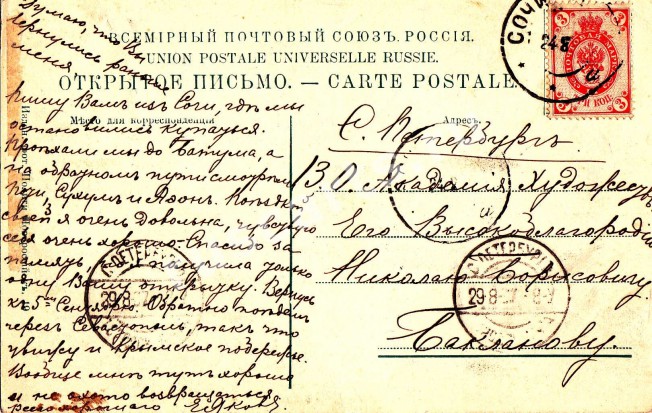 Думаю, что Вы
вернулись ранѣе
меня
ВСЕМІРНЫЙ ПОЧТОВЫЙ СОЮЗЪ. РОССІЯ.
UNION POSTALE UNIVERSELLE RUSSIE.
ОТКРЫТОЕ ПИСЬМО. — CARTE POSTALE.
Мѣсто для корреспонденціи
Адресъ.
Пишу Вамъ изъ Сочи, гдѣ мы
остановились купаться.
Проѣхали мы до Батума, а
на обратномъ пути смотрѣли
Сухумъ и Афонъ. Поѣздкой
своей я очень довольна, чувствую
себя очень хорошо. Спасибо за
получила только
одну Вашу открытку. Вернусь
къ 5му Сентября. Обратно поѣдемъ
черезъ Севастополь, такъ что
увижу и Крымское побережье.
Вообще мнѣ тутъ хорошо
и не охота возвращаться
С. Петербургъ
В О. Академія Художествъ
Его Высокоблагородію
Николаю Борисовичу
Бакланову.
СОЧИ
24 8
3
3
3
3
ПОЧТОВАЯ МАРКА
ТРИ КОП.
С.ПЕТЕРБУРГЪ
29.8
С.ПЕТЕРБУРГЪ
29.8.07